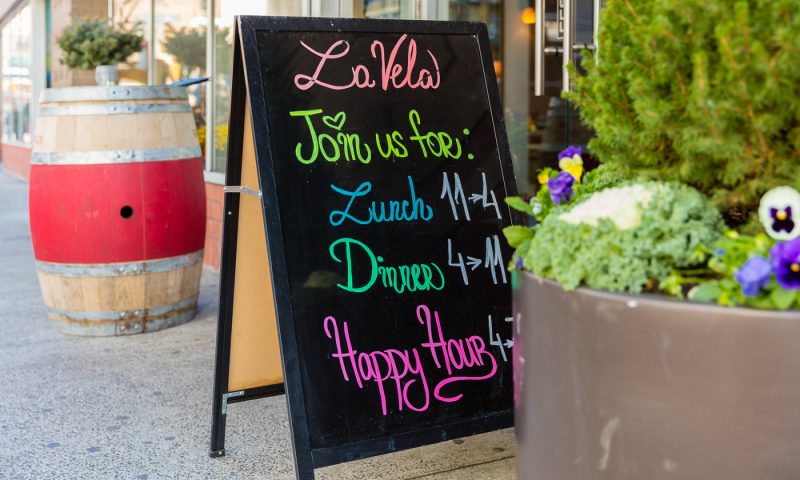 La Vela
Join us for:
Lunch 11→4
Dinner 4→11
Happy Hour 4→